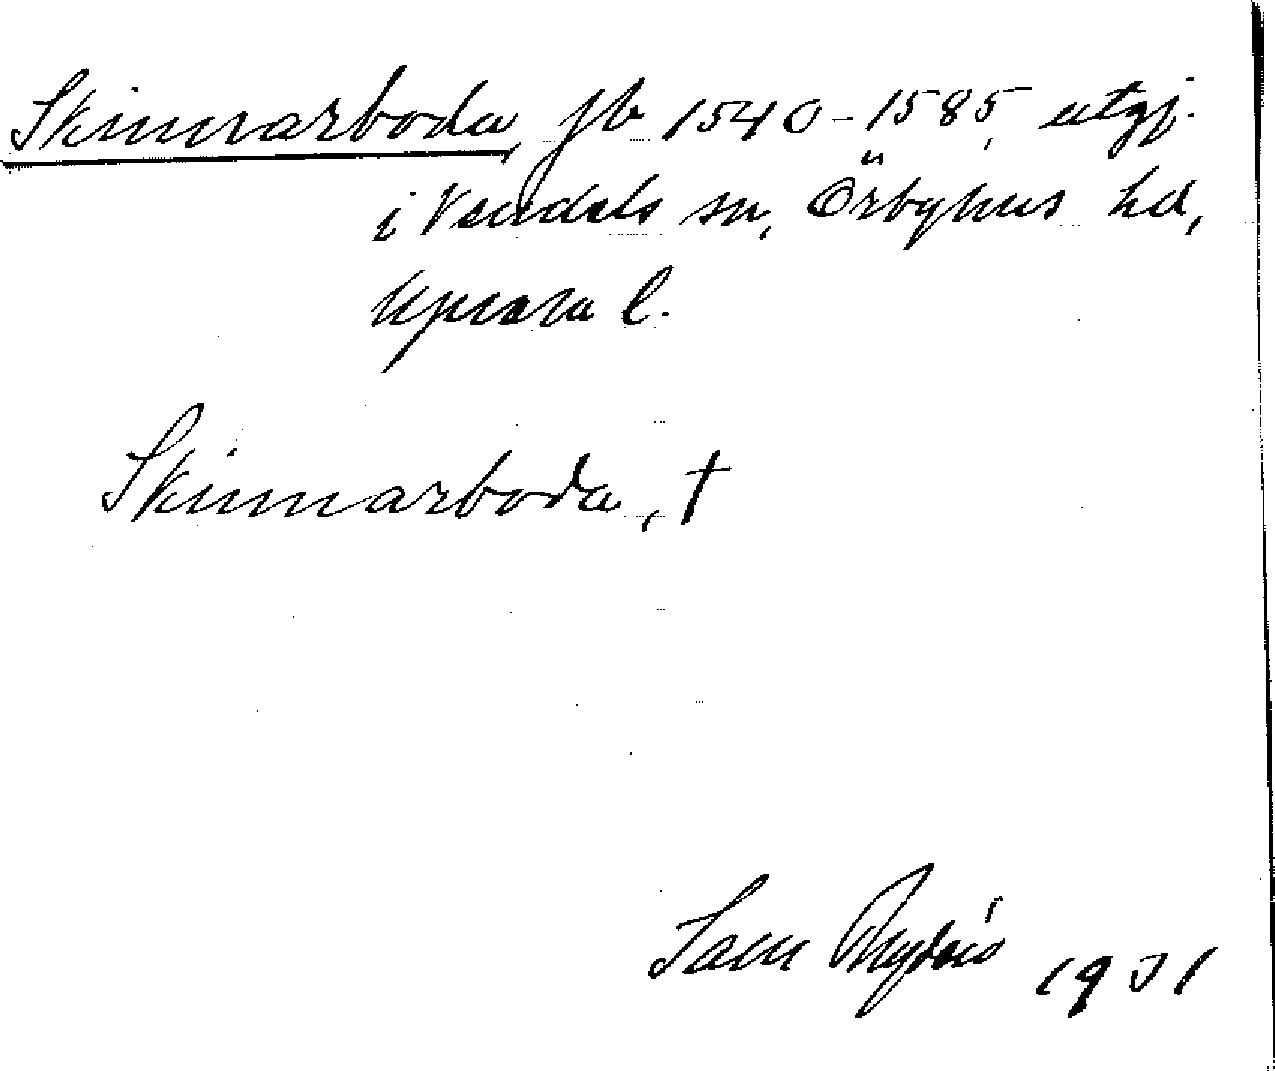 Skinnarboda, jb 1540-1585, utgj.
i Vendels sn, Örbyhus hd,
Upsala l.
Skinnarboda, †
Sam 1931